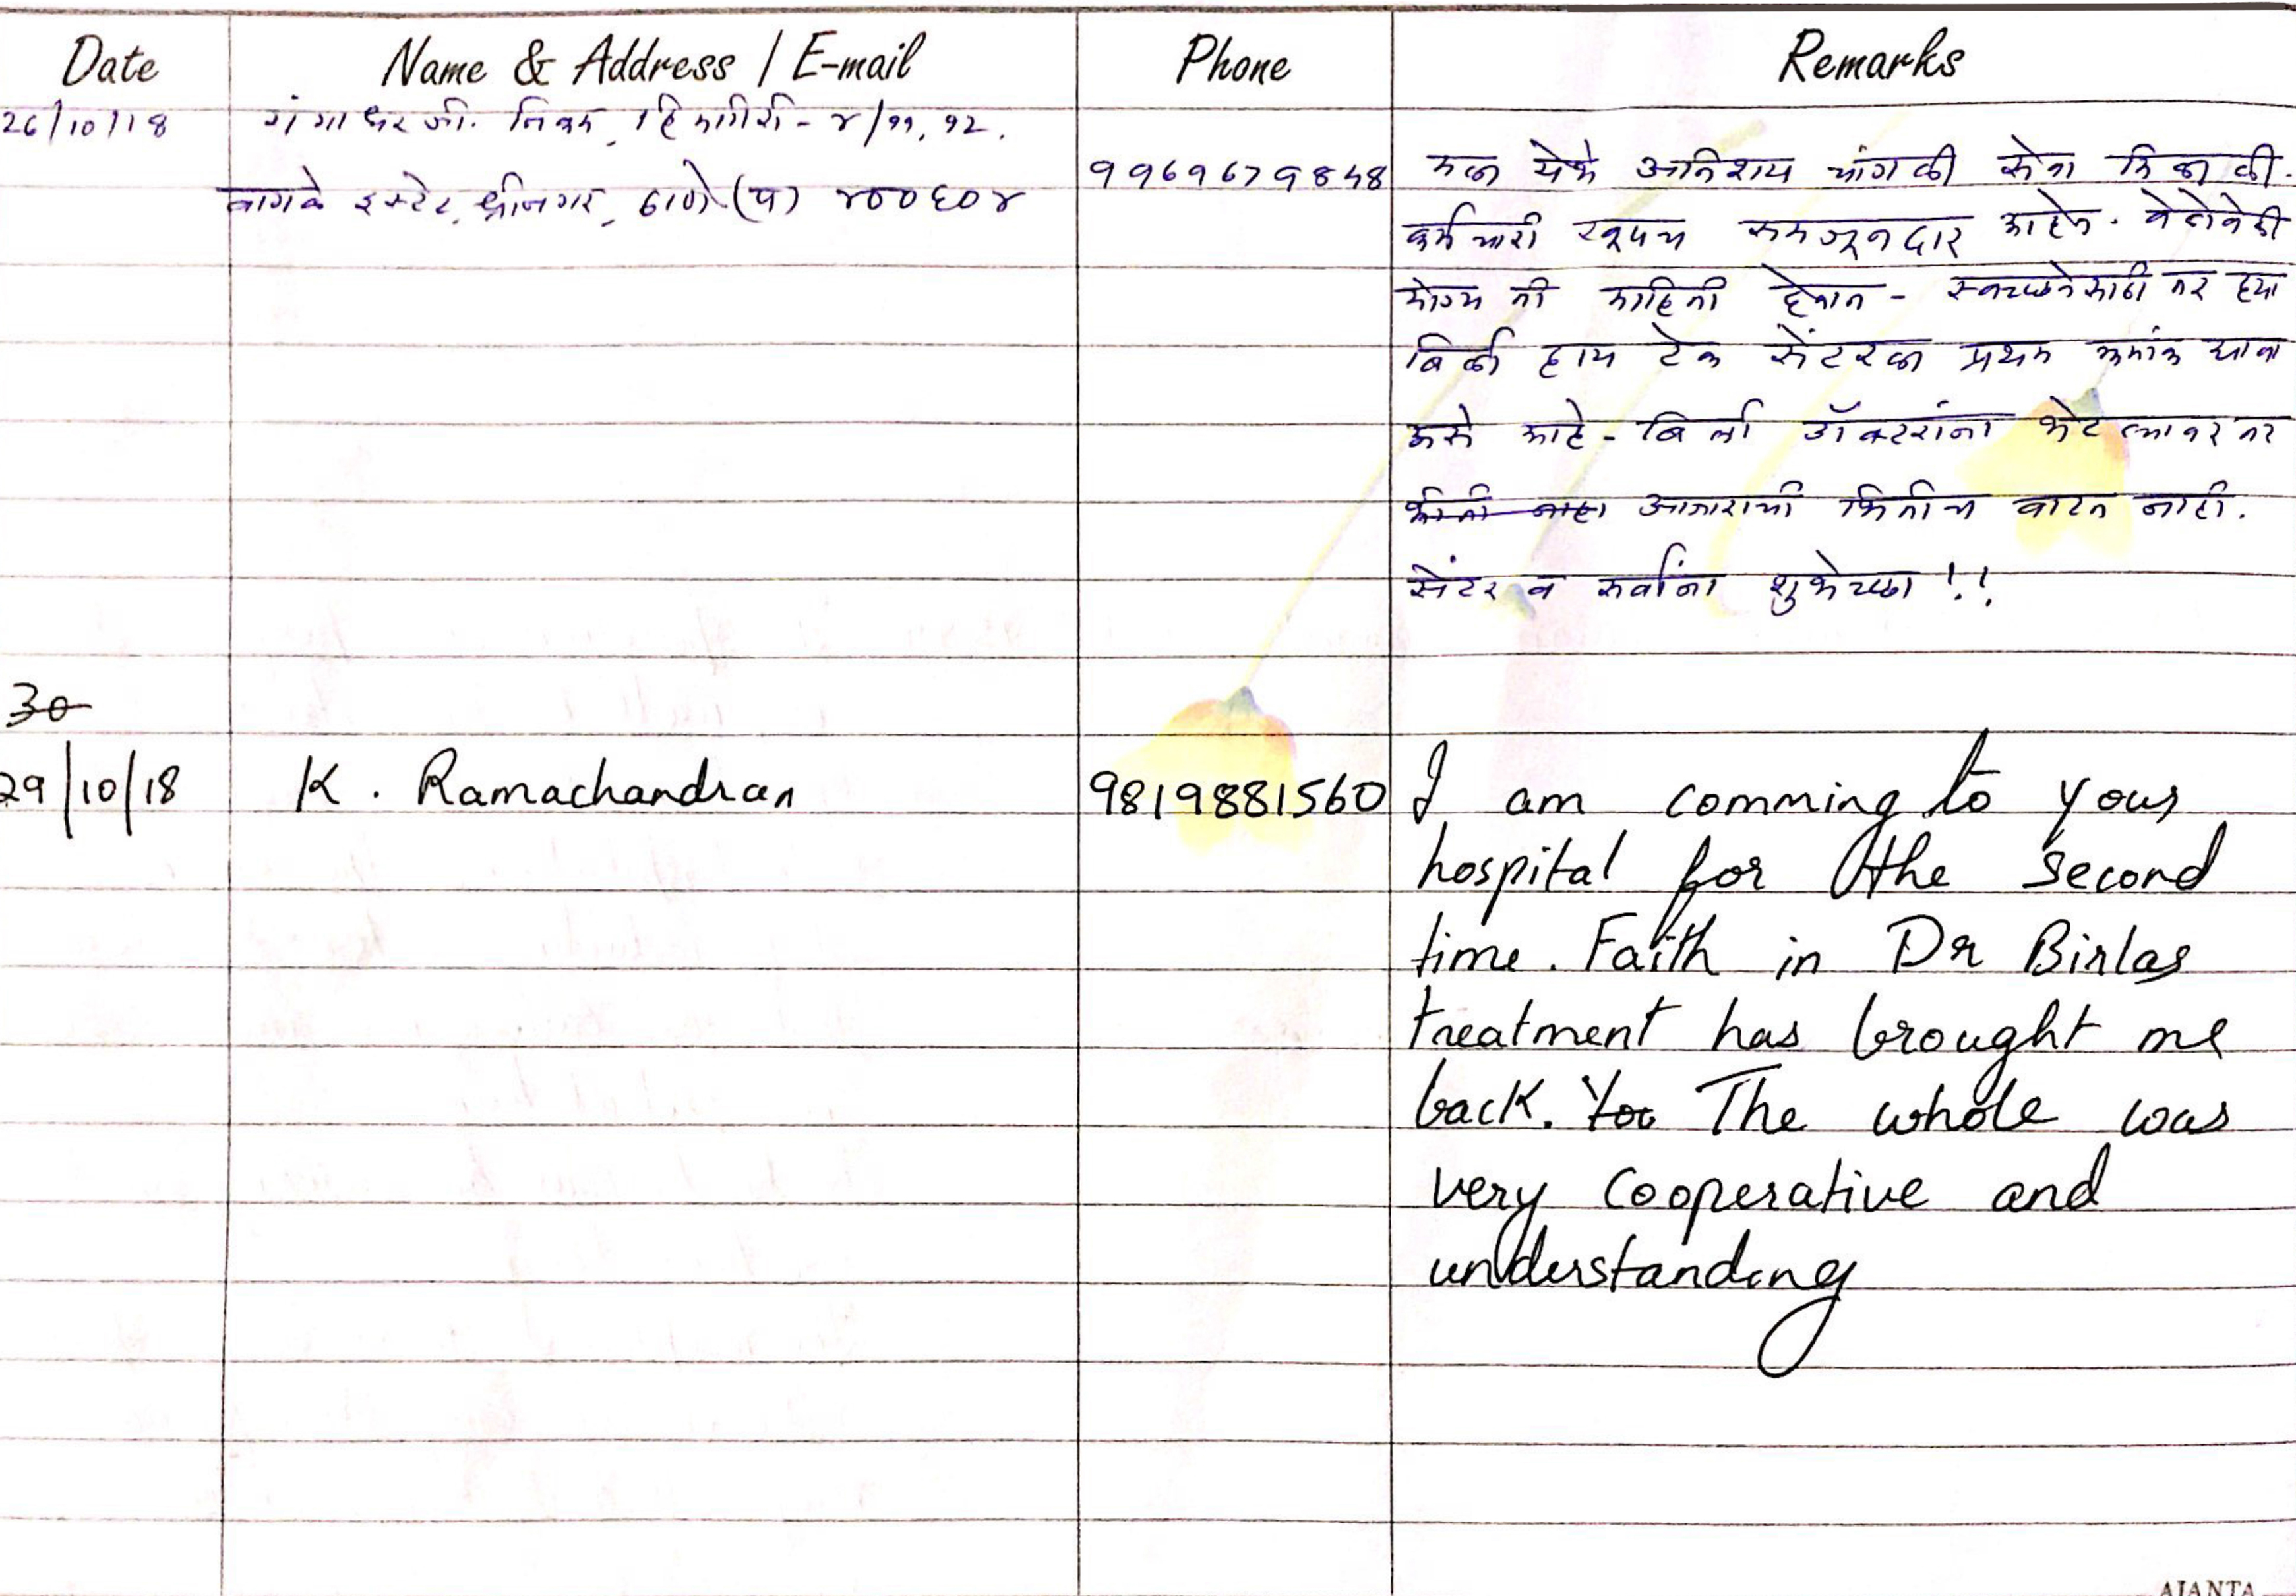 Date Name & Address / E-mail Phone Remarks
26/10/18 गंगाधर जी. निकम, हिमगिरी - ४/११, १२.
वागळे इस्टेट, श्रीनगर, ठाणे (प) ४००६०४
9969679848 मला येथे अतिशय चांगली सेवा मिळाली.
कर्मचारी खूपच समजूतदार आहेत. वेळोवेळी
योग्य ती माहिती देतात - स्वच्छतेसाठी तर ह्या
बिर्ला हाय टेक सेंटरला प्रथम क्रमांक द्यावा
असे आहे - बिर्ला डॉक्टरांना भेटल्यावर तर
आजाराची भितीच वाटत नाही.
सेंटर व सर्वांना शुभेच्छा !!
30
29/10/18 K. Ramachandran 9819881560 I am comming to your
hospital for the second
time. Faith in Dr Birlas
treatment has brought me
back. You The whole was
very cooperative and
understanding
AJANTA